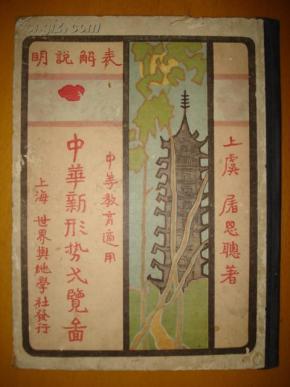 表解說明
上虞 屠思聰著
中等教育適用
中華新形勢弌覽圖
上海 世界輿地學社發行